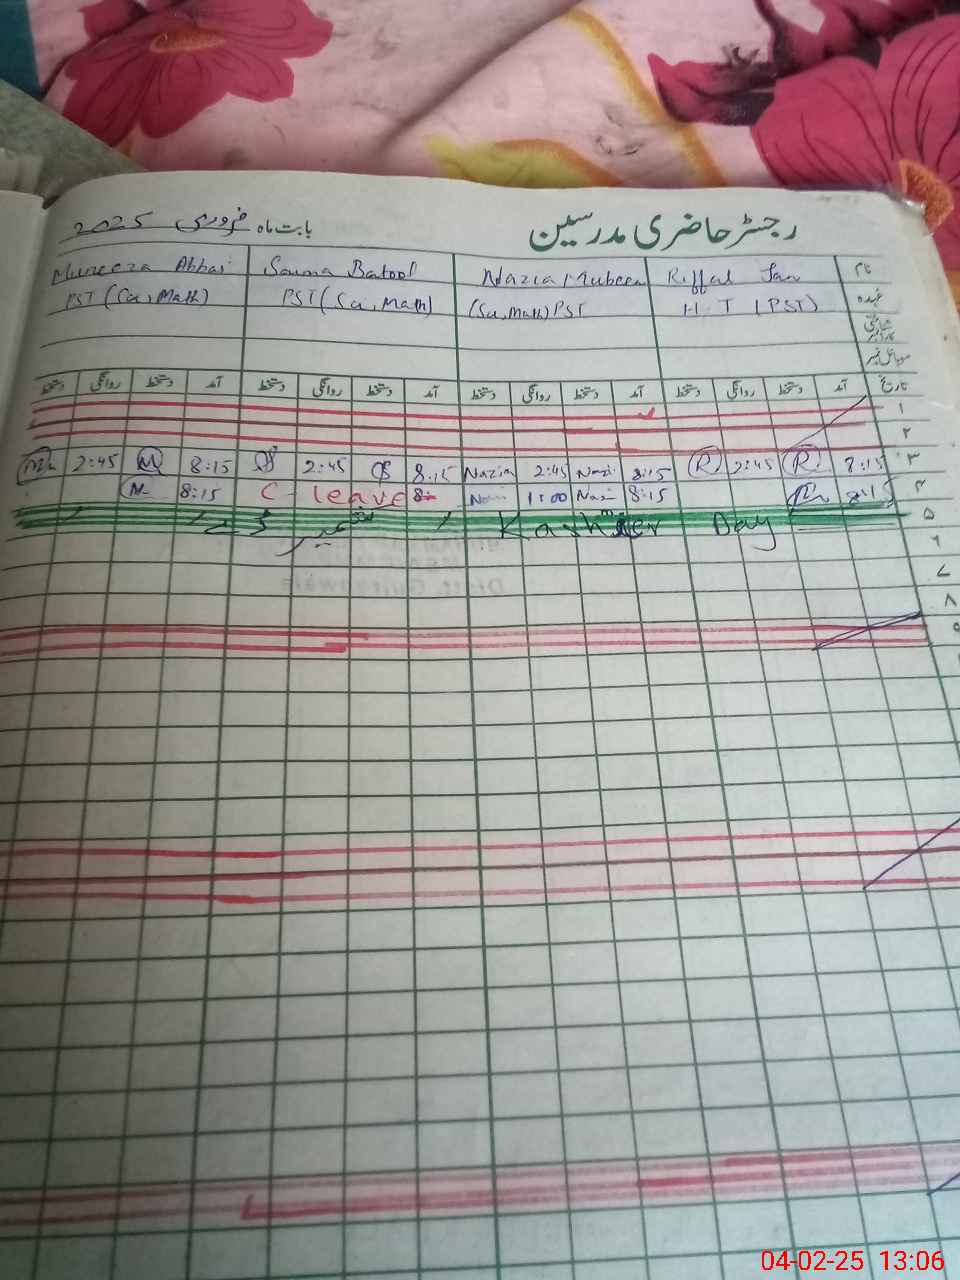 رجسٹر حاضری مدرسین بابت ماہ فروری 2025
نام Riffat Jan Nazia Mubeen Sauma Batool Muneeza Abbas
عہدہ H.T (PST) (Sci, Math) PST PST (Sci, Math) PST (Sci, Math)
شناختی کارڈ نمبر
موبائل نمبر
تاریخ آمد دستخط روانگی دستخط آمد دستخط روانگی دستخط آمد دستخط روانگی دستخط آمد دستخط روانگی دستخط
۱
۲
۳ 8:15 R 2:45 R 8:15 Nazi 2:45 Nazia 8:15 2:45 8:15 M 2:45
۴ 8:15 8:15 Nazi 1:00 8: C leave 8:15 M
۵ Kashmier Day / کشمیر ڈے /
۶
۷
۸
۹
04-02-25 13:06